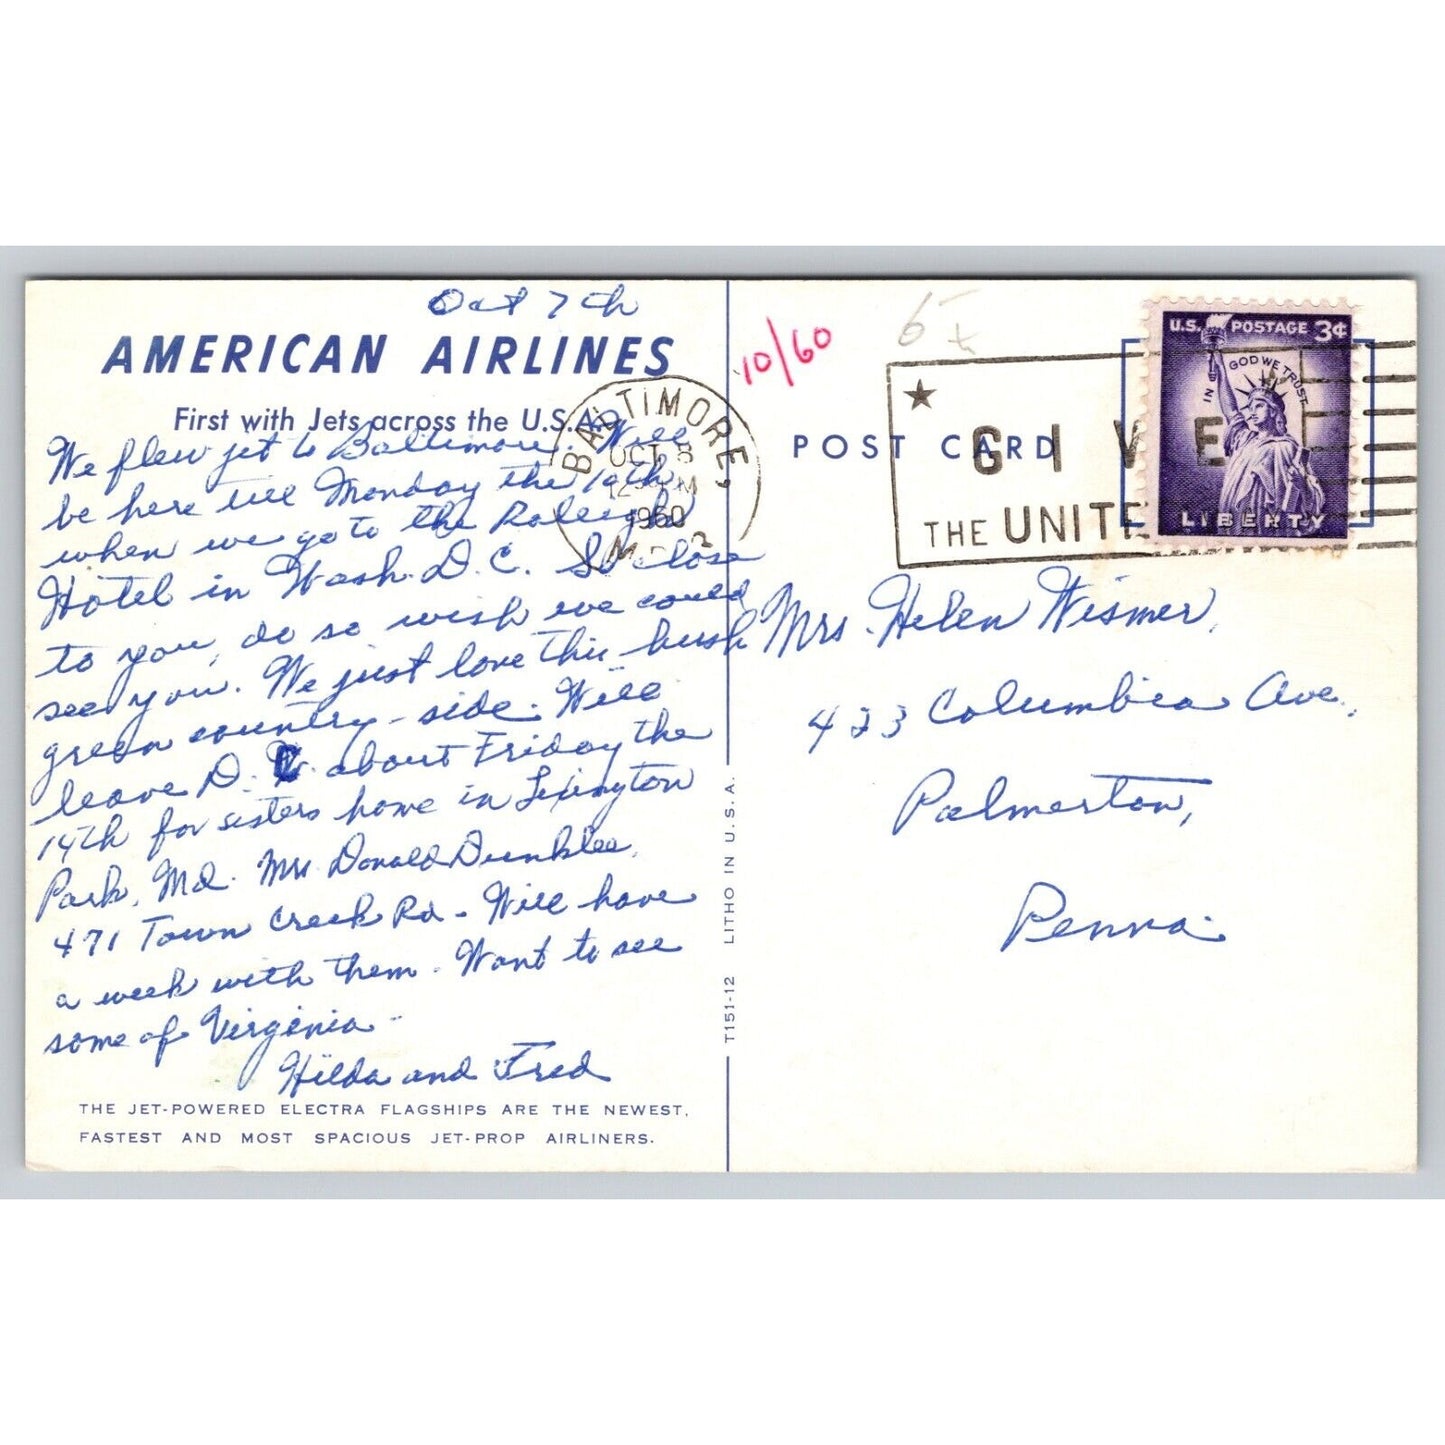 Oct 7th
AMERICAN AIRLINES
First with Jets across the U.S.A.
We flew jet to Baltimore. Will
be here till Monday the 10th
when we go to the Raleigh
Hotel in Wash. D.C. So close
to you, do so wish we could
see you. We just love this lush
green country-side. Will
leave D.C. about Friday the
14th for sisters home in Lexington
Park, Md. Mrs Donald Dunklee,
471 Town Creek Rd - Will have
a week with them. Want to see
some of Virginia -
Hilda and Fred
THE JET-POWERED ELECTRA FLAGSHIPS ARE THE NEWEST,
FASTEST AND MOST SPACIOUS JET-PROP AIRLINERS.
T151-12 LITHO IN U.S.A.
BALTIMORE,
OCT 8
PM
1960
10/60
POST CARD
GIVE
THE UNITE
U.S. POSTAGE 3¢
IN GOD WE TRUST
LIBERTY
Mrs. Helen Wismer,
433 Columbia Ave.,
Palmerton,
Penna.